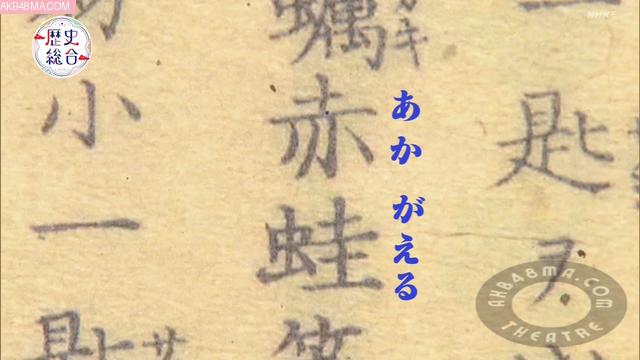 AKB48MA.COM
歴史総合
NHK Eテレ
一
匙ヲ
蠣
カキ
赤蛙
あか がえる
小
一
匙
サ
AKB48MA.COM
THEATRE